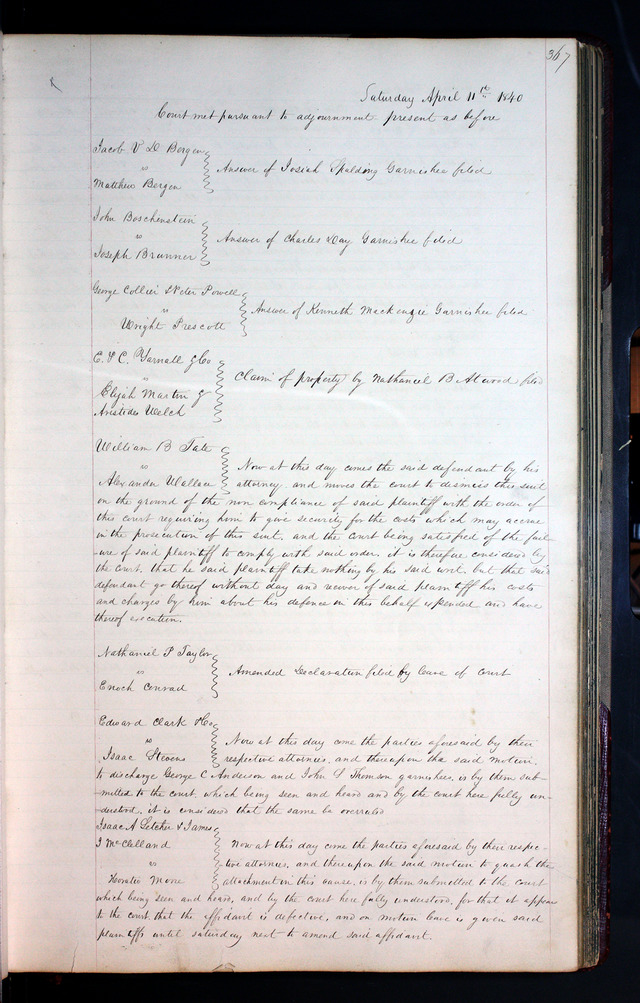 367
Saturday April 11th 1840
Court met pursuant to adjournment present as before
Jacob V D Bergen
vs
Matthew Bergen
Answer of Josiah Spalding Garnishee filed
John Boschenstein
vs
Joseph Brunner
Answer of Charles Day Garnishee filed
George Collier & Peter Powell
vs
Wright Prescott
Answer of Kenneth Mackenzie Garnishee filed
E. & C. Yarnall & Co
vs
Elijah Martin &
Aristides Welch
Claim of property by Nathaniel B Atwood filed
William B Tate
vs
Alexander Wallace
Now at this day comes the said defendant by his
attorney and moves the court to dismiss this suit
on the ground of the non compliance of said plaintiff with the order of
this court requiring him to give security for the costs which may accrue
in the prosecution of this suit, and the court being satisfied of the fail-
-ure of said plaintiff to comply with said order, it is therefore considered by
the court, that he said plaintiff take nothing by his said writ, but that said
defendant go thereof without day and recover of said plaintiff his costs
and charges by him about his defence in this behalf expended and have
thereof execution.
Nathaniel P Taylor
vs
Enoch Conrad
Amended Declaration filed by leave of court
Edward Clark & Co
vs
Isaac Stevens
Now at this day come the parties aforesaid by their
respective attornies, and thereupon the said motion
to discharge George C Anderson and John S Thomson garnishees, is by them sub-
-mitted to the court, which being seen and heard and by the court here fully un-
-derstood, it is considered that the same be overruled
Isaac A Letcher & James
J McClelland
vs
Horatio Moore
Now at this day come the parties aforesaid by their respec-
-tive attornies, and thereupon the said motion to quash the
attachment in this cause, is by them submitted to the court
which being seen and heard, and by the court here fully understood, for that it appears
to the court that the affidavit is defective, and on motion leave is given said
plaintiffs until saturday next to amend said affidavit.